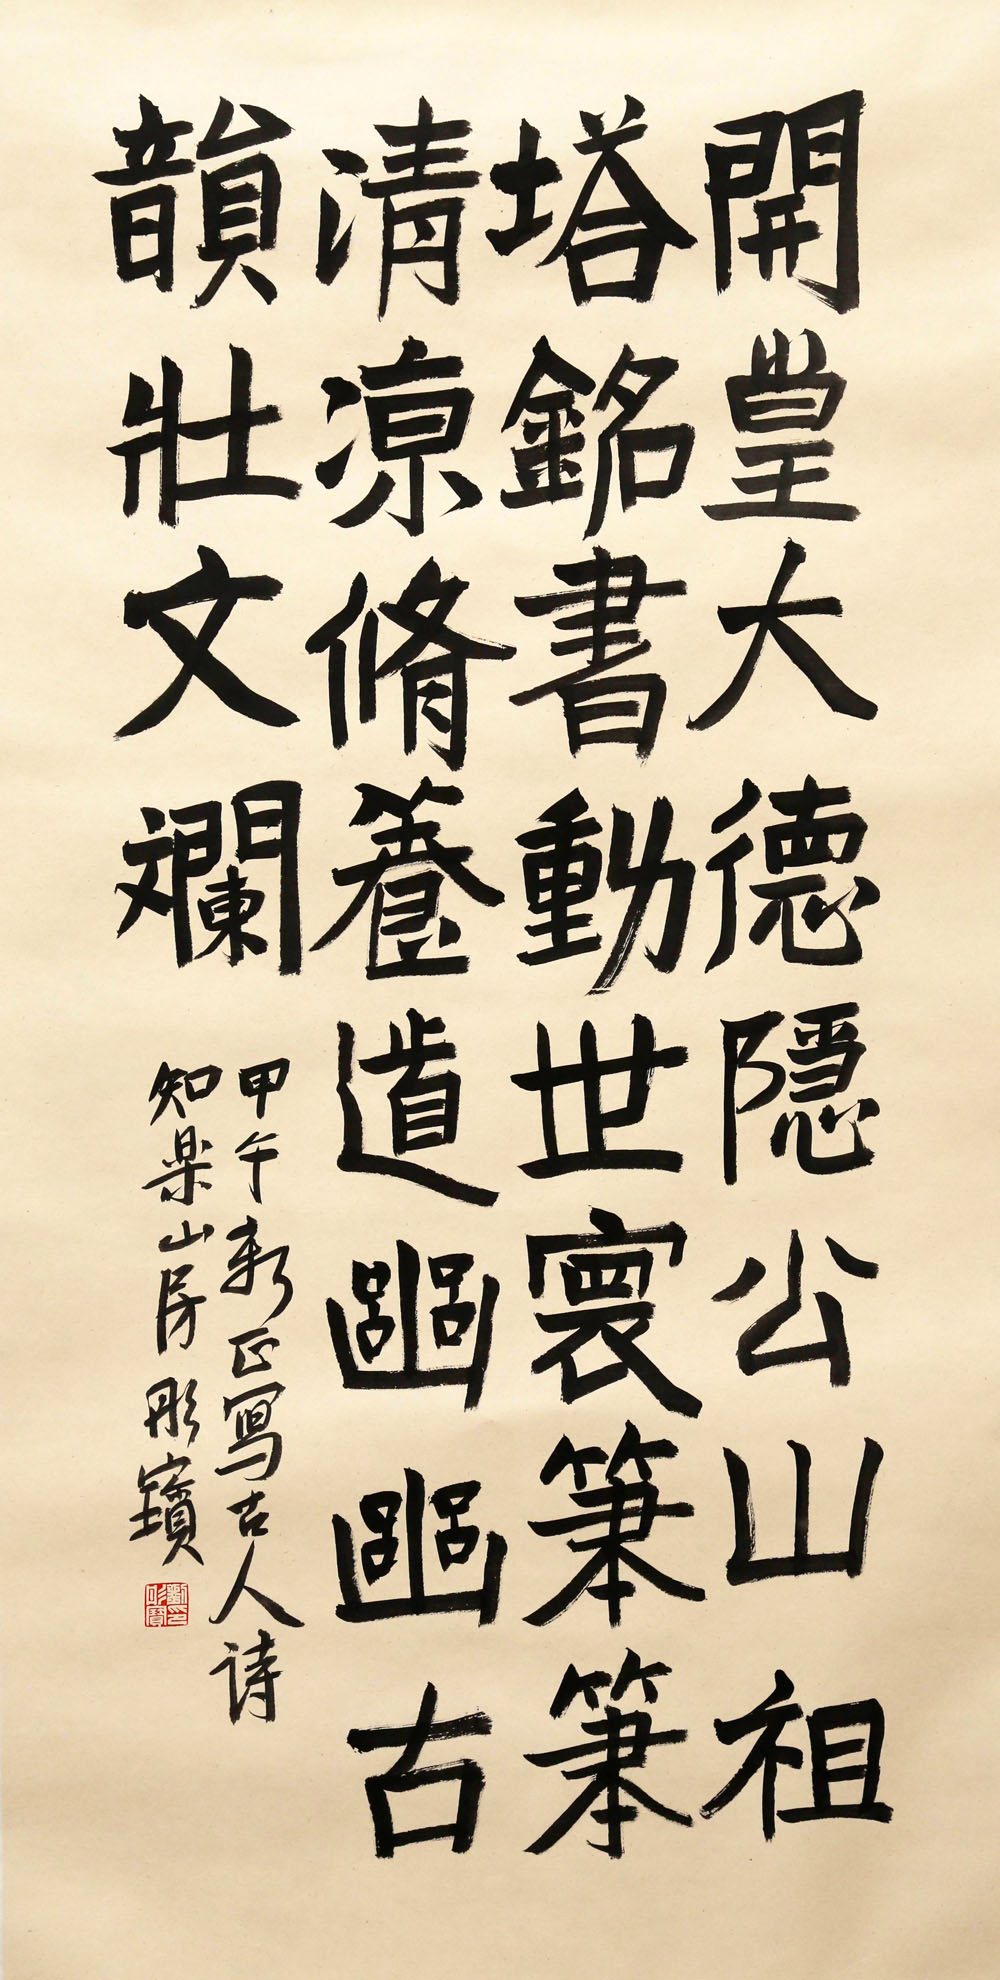 開皇大德隱公山祖
塔銘書動世寰筆筆
清涼脩養道幽幽古
韻壯文斕
甲午新正寫古人詩
知楽山房彤寶